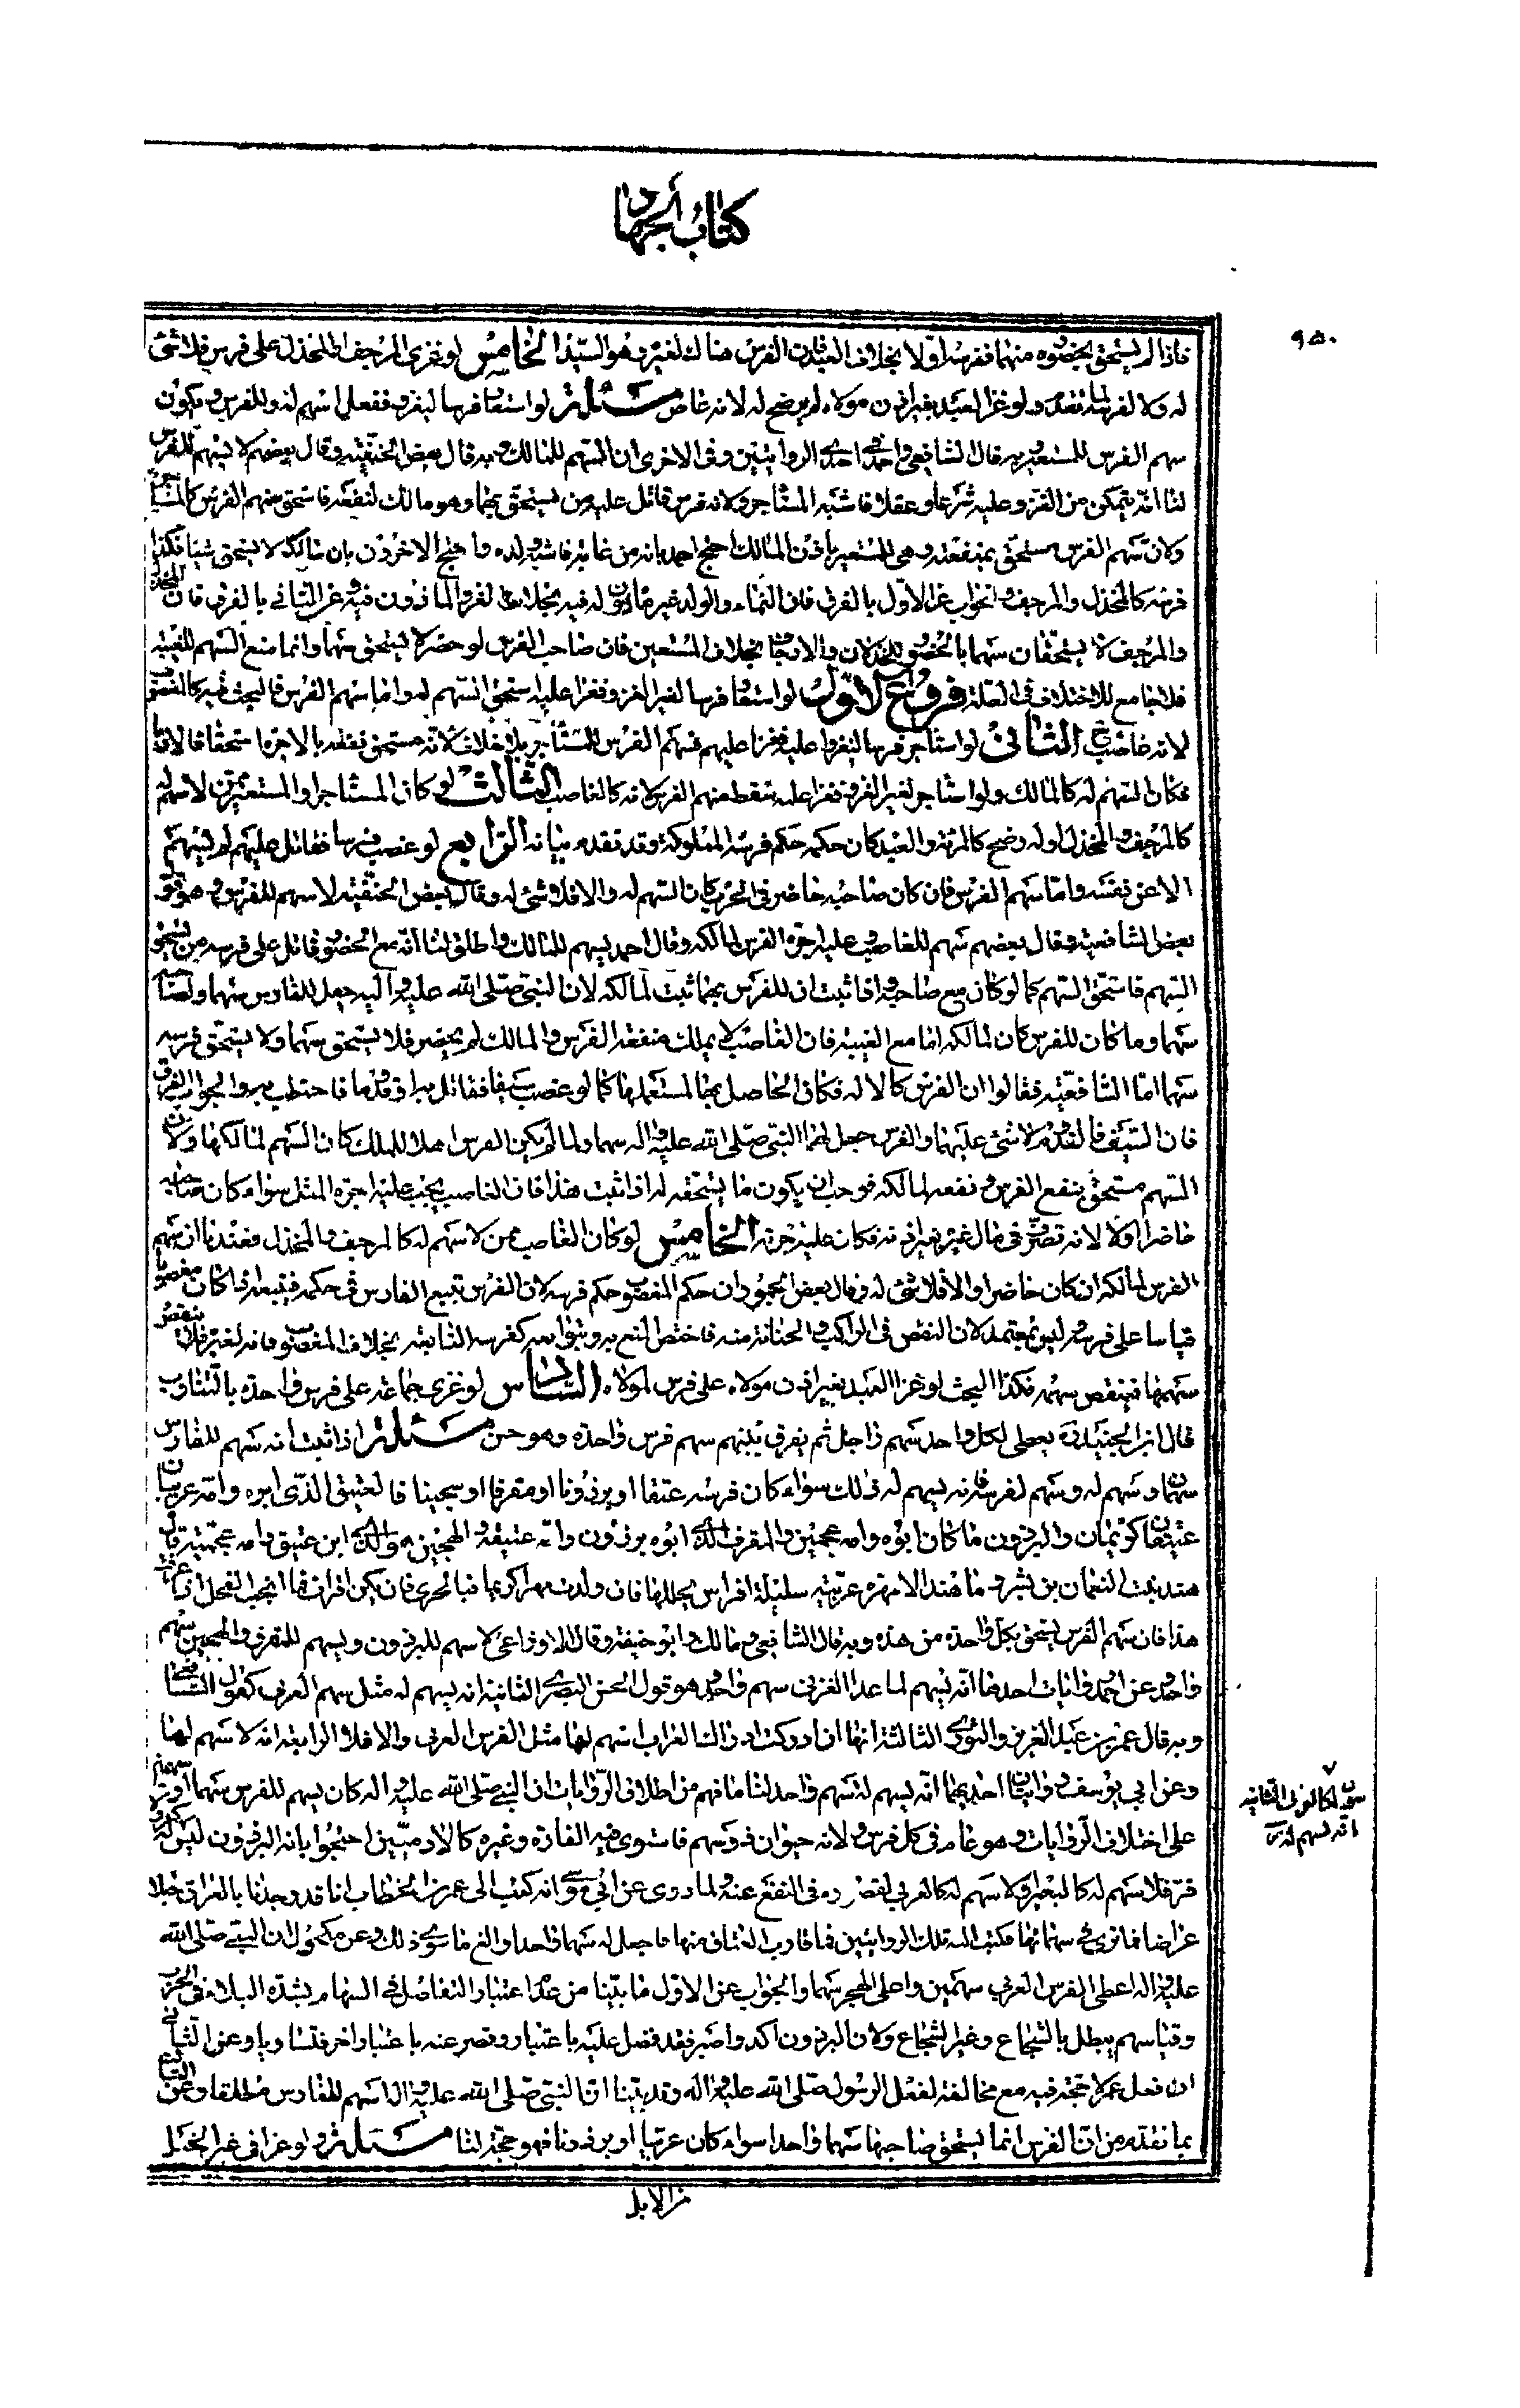 كتاب الجهاد
٩٥٠
فاذا لم يستحق بحضوره منهما ففرسه اولى بخلاف العبد فان الفرس هناك لغيره وهو السيد الخامس لو غزى المرجف او المخذل على فرس فلا شئ
له ولا لفرسه لما تقدم ولو غزا العبد بغير اذن مولاه لم يرضخ له لانه عاص مسئلة لو استعار فرسا ليغزو ففعل اسهم له وللفرس ويكون
سهم الفرس للمستعير وبه قال الشافعي واحمد في احدى الروايتين وفي الاخرى ان السهم للمالك وبه قال بعض الحنفية وقال بعضهم لا يسهم للفرس
لنا انه يتمكن من الغزو عليه شرعا وعقلا فاشبه المستاجر ولانه فرس قاتل عليه من يستحق سهما وهو مالك لنفعه فاستحق سهم الفرس كالمستاجر
ولان سهم الفرس مستحق بمنفعته وهى للمستعير باذن المالك احتج احمد بانه من نمائه فاشبه ولده واحتج الاخرون بان مالكه لا يستحق شيئا فكذا
فرسه كالمخذل والمرجف والجواب عن الاول بالفرق فان النماء والولد غير ماذون له فيه بخلاف الغزو الماذون فيه وعن الثاني بالفرق فان المخذل
والمرجف لا يستحقان سهما بالحضور للخذلان والارجاف بخلاف المستعير فان صاحب الفرس لو حضر لاستحق سهما وانما منع السهم للغيبة
فلا جامع للاختلاف في العلة فروع الاول لو استعار فرسا لغير الغزو فغزا عليه استحق السهم له واما سهم الفرس فالبحث فيه كالغصب
لانه غاصب الثاني لو استاجر فرسا ليغزوا عليه فغزا عليه فسهم الفرس للمستاجر بلا خلاف لانه مستحق نفعه بالاجرة استحقاقا لازما
فكان السهم له كالمالك ولو استاجر لغير الغزو فغزا عليه سقط سهم الفرس لانه كالغاصب الثالث لو كان المستاجر او المستعير ممن لا سهم له
كالمرجف والمخذل او له رضخ كالمرئة والعبد كان حكمه حكم فرسه المملوكة وقد تقدم بيانه الرابع لو غصب فرسا فقاتل عليه لم يسهم
الا عن نفسه واما سهم الفرس فان كان صاحبه حاضرا في الحرب كان السهم له والا فلا شئ له وقال بعض الحنفية لا سهم للفرس وهو قول
بعض الشافعية وقال بعضهم سهم للغاصب وعليه اجرة الفرس لمالكه وقال احمد يسهم للمالك واطلق لنا انه مع الحضور قاتل على فرسه من يستحق
السهم فاستحق السهم كما لو كان مع صاحبه واذا ثبت ان للفرس سهما ثبت لمالكه لان النبي صلى الله عليه وآله جعل للفارس سهما ولصاحبه
سهما وما كان للفرس كان لمالكه اما مع الغيبة فان الغاصب لا يملك منفعة الفرس والمالك لم يحضر فلا يستحق سهما ولا يستحق فرسه
سهما اما الشافعية فقالوا ان الفرس كالالة فكان الحاصل بها لمستعملها كما لو غصب سيفا فقاتل به او قدوما فاحتطب به والجواب الفرق
فان السيف والقدوم لا شئ عليهما والفرس جعل لها النبي صلى الله عليه واله سهما ولما لم يكن الفرس اهلا للملك كان السهم لمالكها ولان
السهم مستحق بنفع الفرس ونفعه لمالكه فوجب ان يكون ما يستحقه له اذا ثبت هذا فان الغاصب يجب عليه اجرة المثل سواء كان صاحبه
حاضرا اولا لانه تصرف في مال غيره بغير اذنه فكان عليه اجرته الخامس لو كان الغاصب ممن لا سهم له كالمرجف والمخذل فعندنا ان سهم
الفرس لمالكه ان كان حاضرا والا فلا شئ له وقال بعض الجمهور ان حكم المغصوب حكم فرسه لان الفرس تتبع الفارس في حكمه فتتبعه اذا كان مغصوبا
قياسا على فرسه وليس بمعتمد لان النقص في الراكب والجناية منه فاختص المنع به وبتوابعه كفرسه التابعة بخلاف المغصوب فانه لغيره فلا ينقص
سهمها فينقص سهمه فكذا البحث لو غزا العبد بغير اذن مولاه على فرس لمولاه السادس لو غزى جماعة على فرس واحدة بالتناوب
قال ابن الجنيد ره يعطى لكل واحد سهم راجل ثم يفرق بينهم سهم فرس واحدة وهو حسن مسئلة اذا ثبت انه يسهم للفارس
سهمان سهم له وسهم لفرسه فانه يسهم له ذلك سواء كان فرسه عتيقا او برذونا او مقرفا او هجينا فالعتيق الذي ابوه وامه عربيان
عتيقان كريمان والبرذون ما كان ابوه وامه عجميين والمقرف الذي ابوه برذون وامه عتيقة والهجين هو الذي ابن عتيق وامه عجمية قالت
هند بنت النعمان بن بشير وما هند الا مهرة عربية سليلة افراس تجللها فان ولدت مهرا كريما فبالحرى فان يكن اقراف فما انجب الفحل اذا عرفت
هذا فان سهم الفرس يستحق بكل واحدة من هذه وبه قال الشافعي ومالك وابو حنيفة وقال الاوزاعي لا سهم للبرذون ويسهم للمقرف والهجين سهم
واحد وعن احمد روايات احدها انه يسهم لما عدا العربي سهم واحد وهو قول الحسن البصري الثانية انه يسهم له مثل سهم العربي كقول الشافعي
وبه قال عمر بن عبد العزيز والثوري الثالثة انها ان ادركت ادراك العراب اسهم لها مثل الفرس العربي والا فلا الرابعة انه لا سهم لها
وعن ابي يوسف روايتان احديهما انه يسهم له سهم واحد لنا ما فهم من اطلاق الروايات ان النبي صلى الله عليه واله كان يسهم للفرس سهما او سهمين
على اختلاف الروايات وهو عام في كل فرس ولانه حيوان ذو سهم فاستوى فيه الفارة وغيره كالادميين احتجوا بانه البرذون ليس له كر ولا
فر فلا سهم له كالبعير ولا سهم له كالعربي لقصوره في النفع عنه ولما روى عن ابي موسى انه كتب الى عمر بن الخطاب انا قد وجدنا بالعراق خيلا
عراضا فما ترى في سهمانها فكتب اليه تلك البراذين فما قارب العتاق منها فاجعل له سهما واحدا والغ ما سوى ذلك وعن مكحول ان النبي صلى الله
عليه واله اعطى الفرس العربي سهمين واعطى الهجين سهما والجواب عن الاول ما بينا من عدم اعتبار التفاضل في السهام بشدة البلاء في الحرب
وقياسهم يبطل بالشجاع وغير الشجاع ولان البرذون اكد واصبر فقد فضل عليه باعتبار وقصر عنه باعتبار اخر فتساويا وعن الثاني
ان فعل عمر لا حجة فيه مع مخالفته لفعل الرسول صلى الله عليه واله وقد بينا ان النبي صلى الله عليه واله اسهم للفارس مطلقا وعن الثالث
بما تقدم من ان الفرس انما يستحق صاحبها سهما واحدا سواء كان عربيا او برذونا فهو حجة لنا مسئلة ولو غزا في غير الخيل
من الابل